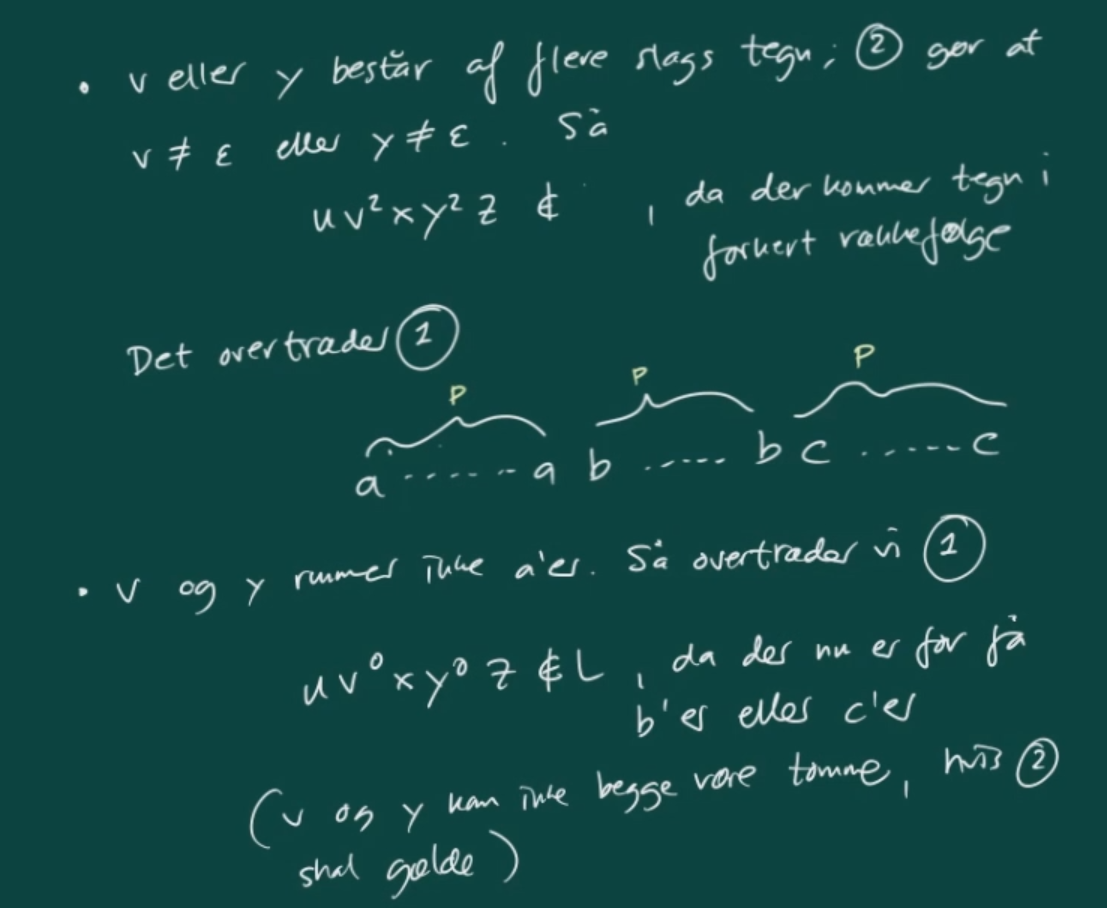 • v eller y består af flere slags tegn; ② gør at
v ≠ ε eller y ≠ ε. Så
uv²xy²z ∉ , da der kommer tegn i
forkert rækkefølge
Det overtræder ①
P P P
a ······ a b ······ b c ······ c
• v og y rummer ikke a'er. Så overtræder vi ①
uv⁰xy⁰z ∉ L, da der nu er for få
b'er eller c'er
(v og y kan ikke begge være tomme, hvis ②
skal gælde)